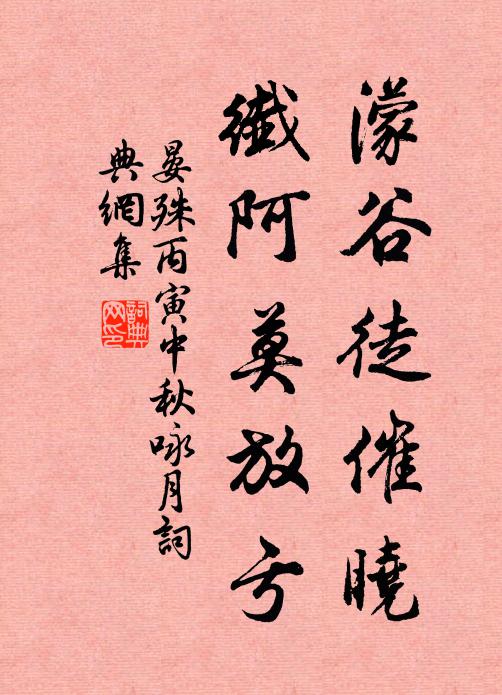 濛谷徒催曉
纖阿莫放亏
晏殊丙寅中秋咏月詞
典網集
詞典网印